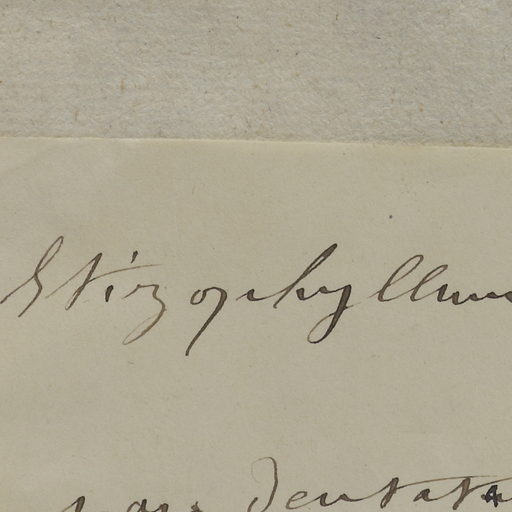 Stizophyllum
var. dentata